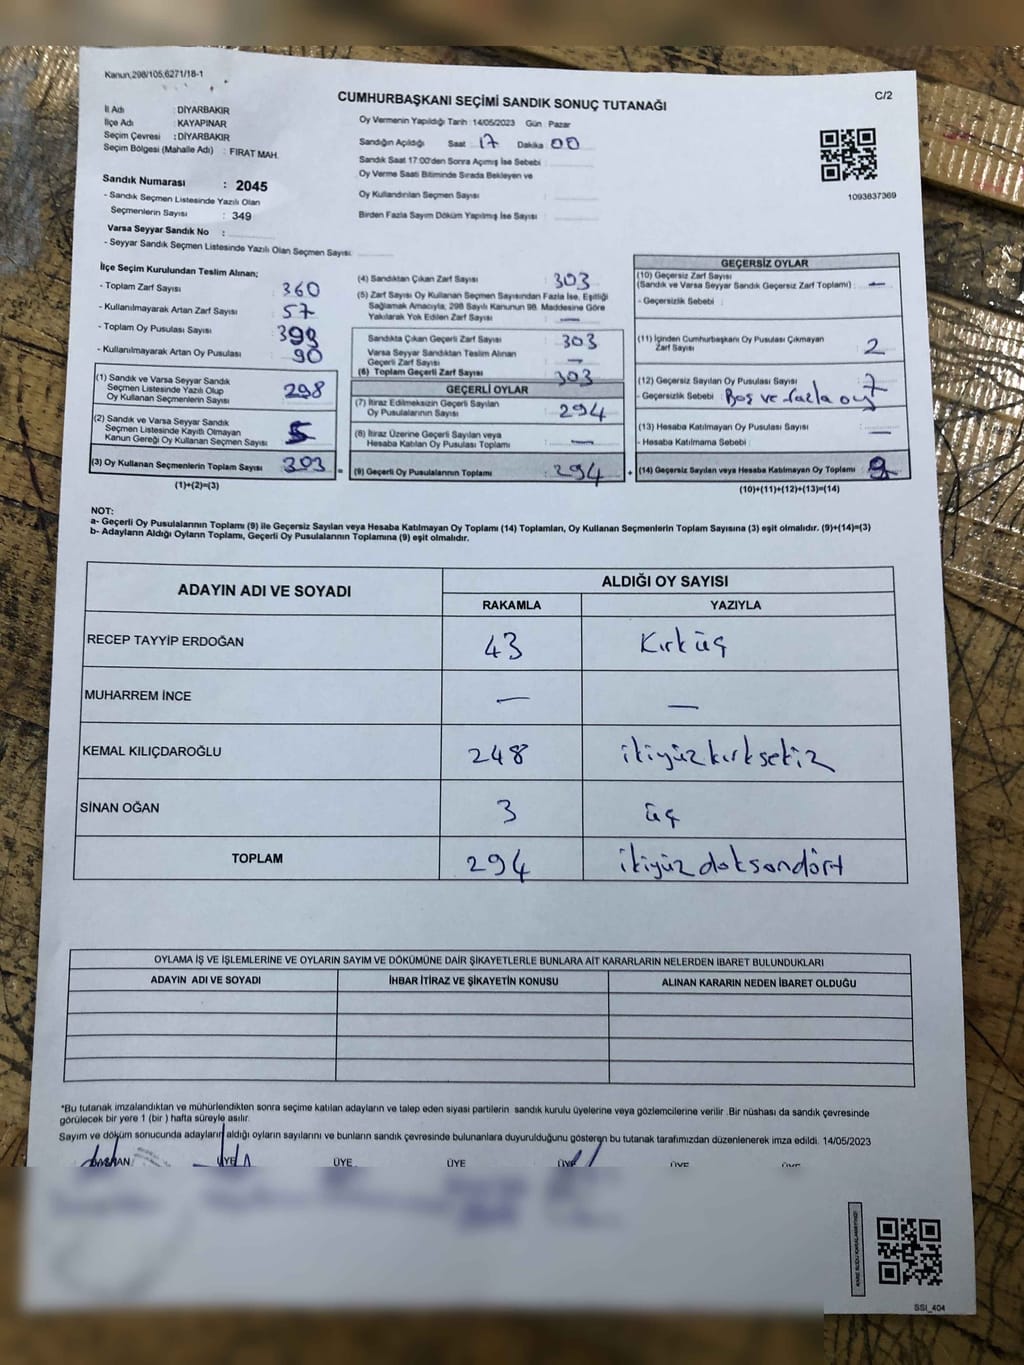 Kanun,298/105,6271/18-1
C/2
CUMHURBAŞKANI SEÇİMİ SANDIK SONUÇ TUTANAĞI
İl Adı : DİYARBAKIR
İlçe Adı : KAYAPINAR
Seçim Çevresi : DİYARBAKIR
Seçim Bölgesi (Mahalle Adı) : FIRAT MAH.
Oy Vermenin Yapıldığı Tarih : 14/05/2023 Gün : Pazar
Sandığın Açıldığı Saat : 17 Dakika : 00
Sandık Saat 17:00'den Sonra Açımış İse Sebebi :
Oy Verme Saati Bitiminde Sırada Bekleyen ve
Oy Kullandırılan Seçmen Sayısı :
Birden Fazla Sayım Döküm Yapılmış İse Sayısı :
1093837369
Sandık Numarası : 2045
- Sandık Seçmen Listesinde Yazılı Olan
Seçmenlerin Sayısı : 349
Varsa Seyyar Sandık No :
- Seyyar Sandık Seçmen Listesinde Yazılı Olan Seçmen Sayısı:
İlçe Seçim Kurulundan Teslim Alınan;
- Toplam Zarf Sayısı : 360
- Kullanılmayarak Artan Zarf Sayısı : 57
- Toplam Oy Pusulası Sayısı : 393
- Kullanılmayarak Artan Oy Pusulası : 90
(1) Sandık ve Varsa Seyyar Sandık
Seçmen Listesinde Yazılı Olup
Oy Kullanan Seçmenlerin Sayısı : 298
(2) Sandık ve Varsa Seyyar Sandık
Seçmen Listesinde Kayıtlı Olmayan
Kanun Gereği Oy Kullanan Seçmen Sayısı : 5
(3) Oy Kullanan Seçmenlerin Toplam Sayısı : 303
(1)+(2)=(3)
(4) Sandıktan Çıkan Zarf Sayısı : 303
(5) Zarf Sayısı Oy Kullanan Seçmen Sayısından Fazla İse, Eşitliği
Sağlamak Amacıyla, 298 Sayılı Kanunun 98. Maddesine Göre
Yakılarak Yok Edilen Zarf Sayısı : —
Sandıkta Çıkan Geçerli Zarf Sayısı : 303
Varsa Seyyar Sandıktan Teslim Alınan
Geçerli Zarf Sayısı : —
(6) Toplam Geçerli Zarf Sayısı : 303
GEÇERLİ OYLAR
(7) İtiraz Edilmeksizin Geçerli Sayılan
Oy Pusulalarının Sayısı : 294
(8) İtiraz Üzerine Geçerli Sayılan veya
Hesaba Katılan Oy Pusulası Toplamı : —
= (9) Geçerli Oy Pusulalarının Toplamı : 294
GEÇERSİZ OYLAR
(10) Geçersiz Zarf Sayısı
(Sandık ve Varsa Seyyar Sandık Geçersiz Zarf Toplamı) : —
- Geçersizlik Sebebi :
(11) İçinden Cumhurbaşkanı Oy Pusulası Çıkmayan
Zarf Sayısı : 2
(12) Geçersiz Sayılan Oy Pusulası Sayısı : 7
- Geçersizlik Sebebi : Boş ve fazla oy
(13) Hesaba Katılmayan Oy Pusulası Sayısı : —
- Hesaba Katılmama Sebebi :
+ (14) Geçersiz Sayılan veya Hesaba Katılmayan Oy Toplamı : 9
(10)+(11)+(12)+(13)=(14)
NOT:
a- Geçerli Oy Pusulalarının Toplamı (9) ile Geçersiz Sayılan veya Hesaba Katılmayan Oy Toplamı (14) Toplamları, Oy Kullanan Seçmenlerin Toplam Sayısına (3) eşit olmalıdır. (9)+(14)=(3)
b- Adayların Aldığı Oyların Toplamı, Geçerli Oy Pusulalarının Toplamına (9) eşit olmalıdır.
ADAYIN ADI VE SOYADI ALDIĞI OY SAYISI
RAKAMLA YAZIYLA
RECEP TAYYİP ERDOĞAN 43 Kırküç
MUHARREM İNCE — —
KEMAL KILIÇDAROĞLU 248 ikiyüzkırksekiz
SİNAN OĞAN 3 üç
TOPLAM 294 ikiyüzdoksandört
OYLAMA İŞ VE İŞLEMLERİNE VE OYLARIN SAYIM VE DÖKÜMÜNE DAİR ŞİKAYETLERLE BUNLARA AİT KARARLARIN NELERDEN İBARET BULUNDUKLARI
ADAYIN ADI VE SOYADI İHBAR İTİRAZ VE ŞİKAYETİN KONUSU ALINAN KARARIN NEDEN İBARET OLDUĞU
*Bu tutanak imzalandıktan ve mühürlendikten sonra seçime katılan adayların ve talep eden siyasi partilerin sandık kurulu üyelerine veya gözlemcilerine verilir .Bir nüshası da sandık çevresinde
görülecek bir yere 1 (bir ) hafta süreyle asılır.
Sayım ve döküm sonucunda adayların aldığı oyların sayılarını ve bunların sandık çevresinde bulunanlara duyurulduğunu gösteren bu tutanak tarafımızdan düzenlenerek imza edildi. 14/05/2023
BAŞKAN ÜYE ÜYE ÜYE ÜYE ÜYE
SSI_404